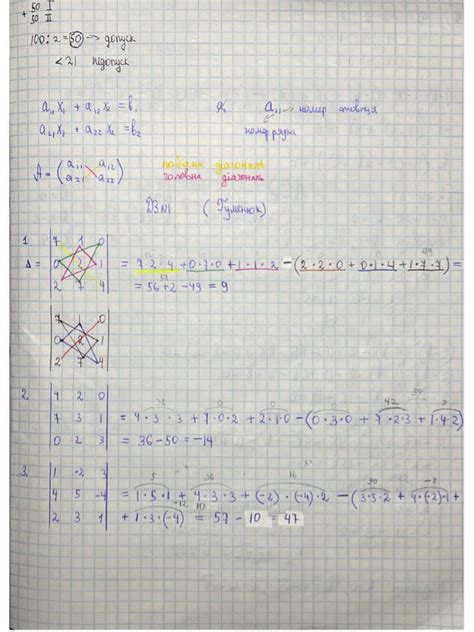 + 50 I
50 II
100 : 2 = 50 → допуск
< 21 недопуск
a₁₁x₁ + a₁₂x₂ = b₁
a₂₁x₁ + a₂₂x₂ = b₂
a₁₁ → номер стовпця
номер рядка
A = (a₁₁ a₁₂
a₂₁ a₂₂)
побічна діагональ
головна діагональ
ДЗ №1
1.
Δ = | 7 1 0
0 2 1
2 7 4 | = 7·2·4 + 0·7·0 + 1·1·2 − (2·2·0 + 0·1·4 + 1·7·7) =
= 56 + 2 − 49 = 9
| 7 1 0
0 2 1
2 7 4 |
2. | 4 2 0
7 3 1
0 2 3 | = 4·3·3 + 7·0·2 + 2·1·0 − (0·3·0 + 7·2·3 + 1·4·2)
= 36 − 50 = −14
3. | 1 -2 3
4 5 -4
2 3 1 | = 1·5·1 + 4·3·3 + (-2)·(-4)·2 − (3·5·2 + 4·(-2)·1 +
+ 1·3·(-4)) = 57 − 10 = 47